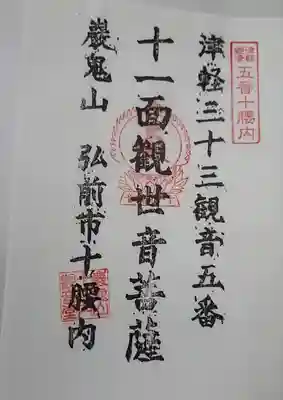 五番十腰内
津軽三十三観音五番
十一面観世音菩薩
巖鬼山 弘前市十腰内